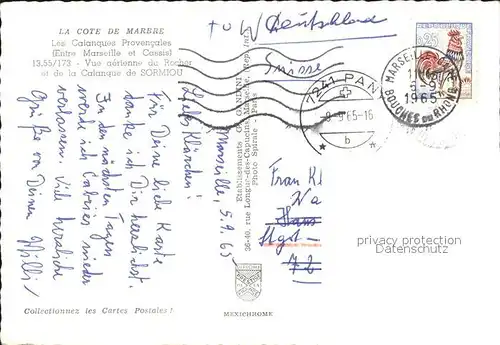 LA COTE DE MARBRE
Les Calanques Provençales
(Entre Marseille et Cassis)
13.55/173 - Vue aérienne du Rocher
et de la Calanque de SORMIOU
Marseille, 5.9.65
Liebe Klärchen!
Für Deine liebe Karte
danke ich Dir herzlichst.
In den nächsten Tagen
werde ich Cabries wieder
verlassen. Viele herzliche
Grüße von Deinem Willi
Collectionnez les Cartes Postales !
Etablissements G. GANDINI
36-40, rue Longue-des-Capucins, Marseille, Rep Inter
Photo Spirale - Paris
MEXICHROME
Deutschland
Suisse
0,25
MARSEILLE
5-9
1965
BOUCHES DU RHONE
7241 PAN
8-9.65-16
b
Frau Kl
Wa
Haus
Stgt-
72
privacy protection
Datenschutz